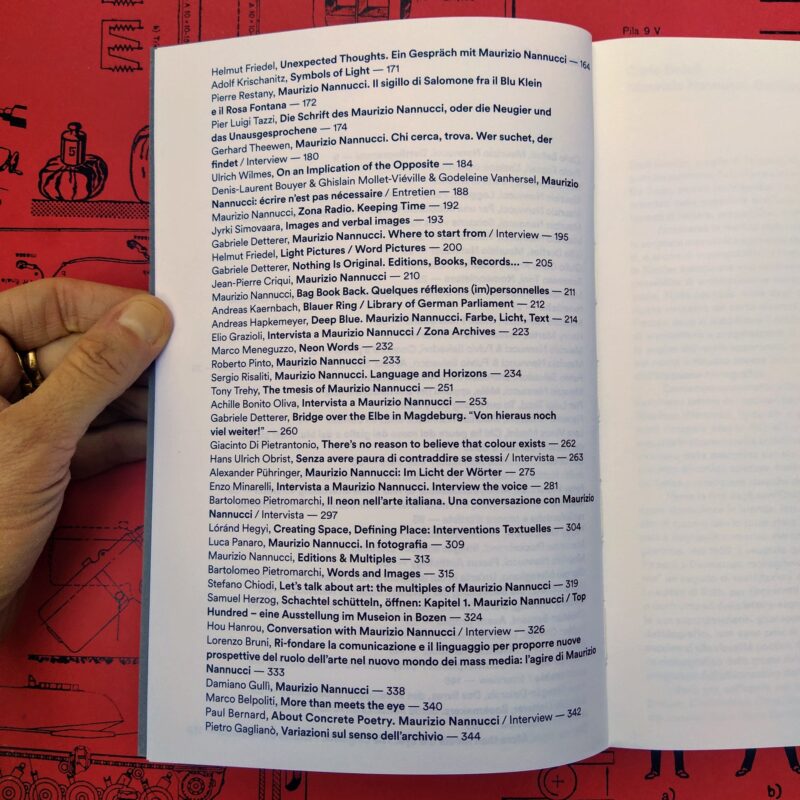 Pila 9 V
Helmut Friedel, Unexpected Thoughts. Ein Gespräch mit Maurizio Nannucci — 164
Adolf Krischanitz, Symbols of Light — 171
Pierre Restany, Maurizio Nannucci. Il sigillo di Salomone fra il Blu Klein
e il Rosa Fontana — 172
Pier Luigi Tazzi, Die Schrift des Maurizio Nannucci, oder die Neugier und
das Unausgesprochene — 174
Gerhard Theewen, Maurizio Nannucci. Chi cerca, trova. Wer suchet, der
findet / Interview — 180
Ulrich Wilmes, On an Implication of the Opposite — 184
Denis-Laurent Bouyer & Ghislain Mollet-Viéville & Godeleine Vanhersel, Maurizio
Nannucci: écrire n'est pas nécessaire / Entretien — 188
Maurizio Nannucci, Zona Radio. Keeping Time — 192
Jyrki Simovaara, Images and verbal images — 193
Gabriele Detterer, Maurizio Nannucci. Where to start from / Interview — 195
Helmut Friedel, Light Pictures / Word Pictures — 200
Gabriele Detterer, Nothing Is Original. Editions, Books, Records... — 205
Jean-Pierre Criqui, Maurizio Nannucci — 210
Maurizio Nannucci, Bag Book Back. Quelques réflexions (im)personnelles — 211
Andreas Kaernbach, Blauer Ring / Library of German Parliament — 212
Andreas Hapkemeyer, Deep Blue. Maurizio Nannucci. Farbe, Licht, Text — 214
Elio Grazioli, Intervista a Maurizio Nannucci / Zona Archives — 223
Marco Meneguzzo, Neon Words — 232
Roberto Pinto, Maurizio Nannucci — 233
Sergio Risaliti, Maurizio Nannucci. Language and Horizons — 234
Tony Trehy, The tmesis of Maurizio Nannucci — 251
Achille Bonito Oliva, Intervista a Maurizio Nannucci — 253
Gabriele Detterer, Bridge over the Elbe in Magdeburg. "Von hieraus noch
viel weiter!" — 260
Giacinto Di Pietrantonio, There's no reason to believe that colour exists — 262
Hans Ulrich Obrist, Senza avere paura di contraddire se stessi / Intervista — 263
Alexander Pühringer, Maurizio Nannucci: Im Licht der Wörter — 275
Enzo Minarelli, Intervista a Maurizio Nannucci. Interview the voice — 281
Bartolomeo Pietromarchi, Il neon nell'arte italiana. Una conversazione con Maurizio
Nannucci / Intervista — 297
Lóránd Hegyi, Creating Space, Defining Place: Interventions Textuelles — 304
Luca Panaro, Maurizio Nannucci. In fotografia — 309
Maurizio Nannucci, Editions & Multiples — 313
Bartolomeo Pietromarchi, Words and Images — 315
Stefano Chiodi, Let's talk about art: the multiples of Maurizio Nannucci — 319
Samuel Herzog, Schachtel schütteln, öffnen: Kapitel 1. Maurizio Nannucci / Top
Hundred – eine Ausstellung im Museion in Bozen — 324
Hou Hanrou, Conversation with Maurizio Nannucci / Interview — 326
Lorenzo Bruni, Ri-fondare la comunicazione e il linguaggio per proporre nuove
prospettive del ruolo dell'arte nel nuovo mondo dei mass media: l'agire di Maurizio
Nannucci — 333
Damiano Gullì, Maurizio Nannucci — 338
Marco Belpoliti, More than meets the eye — 340
Paul Bernard, About Concrete Poetry. Maurizio Nannucci / Interview — 342
Pietro Gaglianò, Variazioni sul senso dell'archivio — 344
5
a)
b)